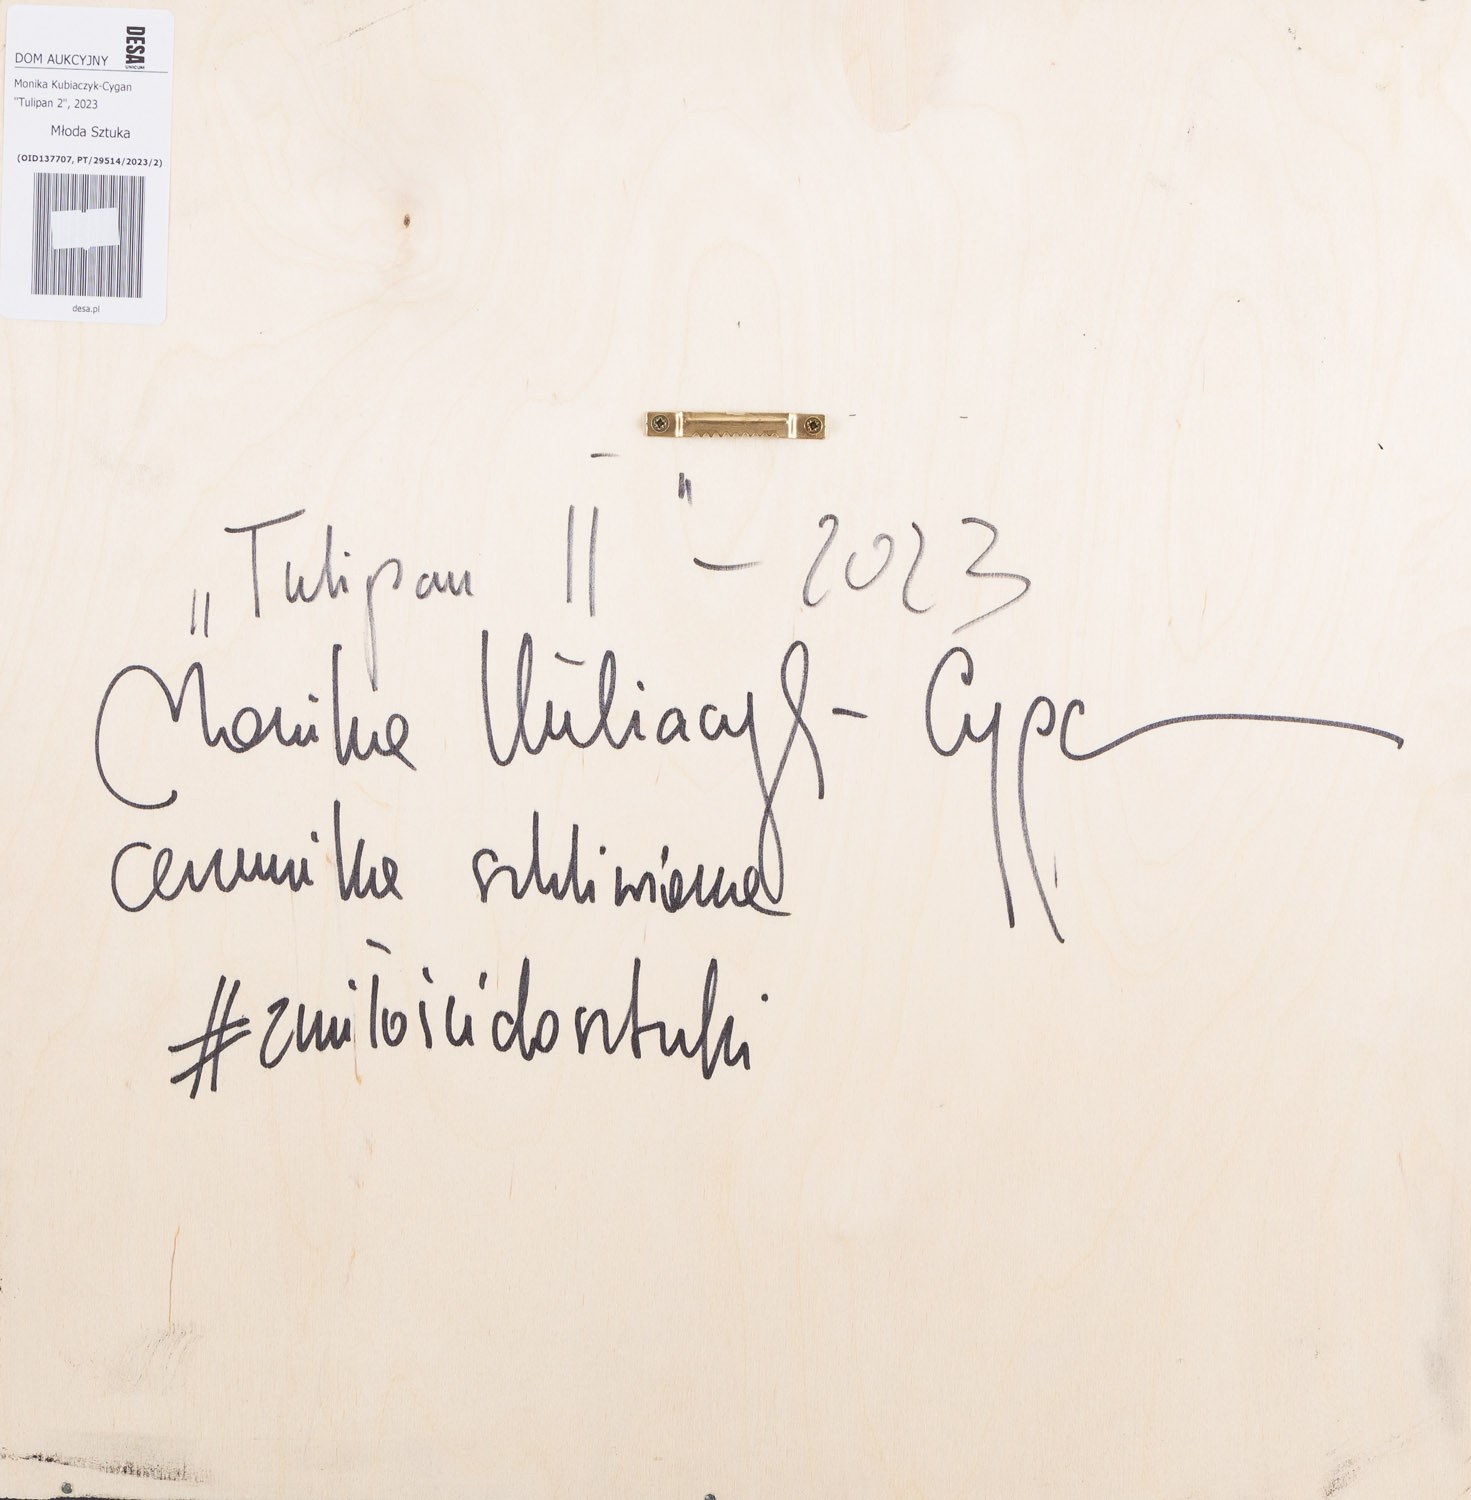 DOM AUKCYJNY
DESA
UNICUM
Monika Kubiaczyk-Cygan
"Tulipan 2", 2023
Młoda Sztuka
(OID137707, PT/29514/2023/2)
desa.pl
„Tulipan II" - 2023
Monika Kubiaczyk - Cygan
ceramika szkliwiona
#zmiłościdosztuki